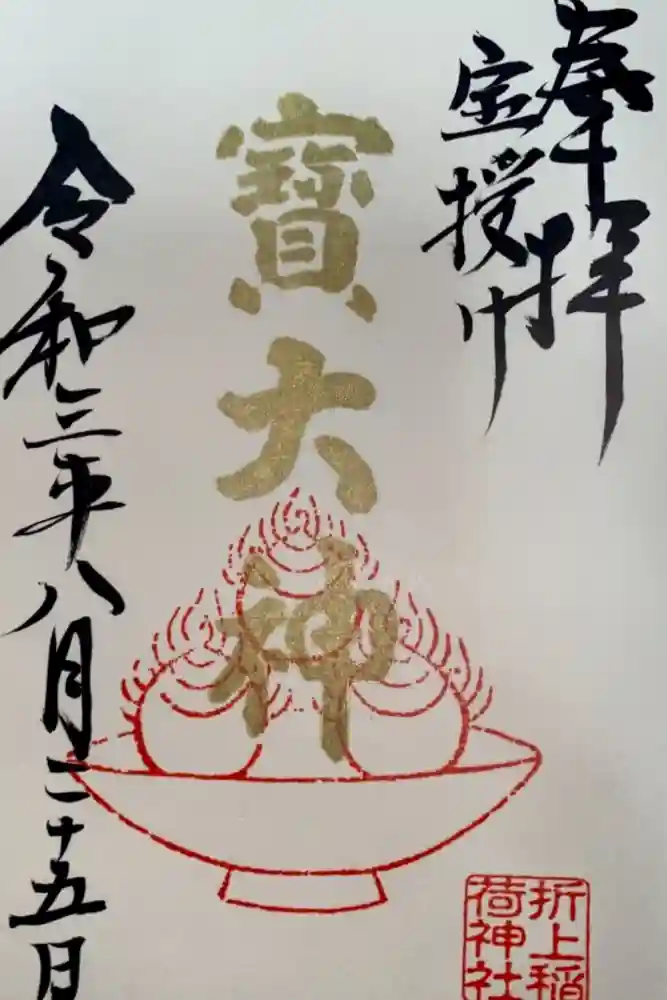 奉拝
宝授巾
寳大神
令和三年八月二十五日
折上稲
荷神社